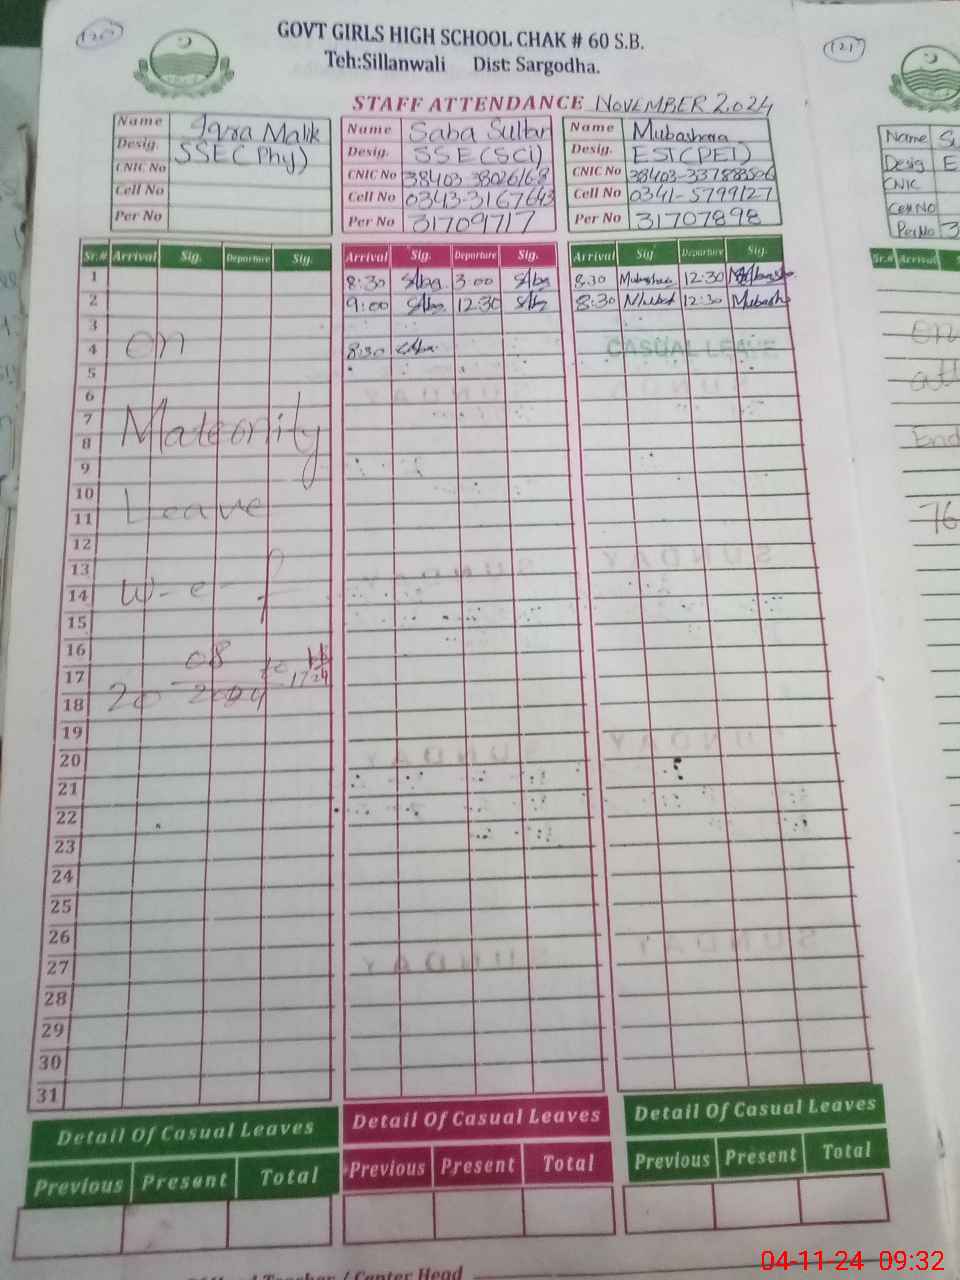 120
GOVT GIRLS HIGH SCHOOL CHAK # 60 S.B.
Teh:Sillanwali Dist: Sargodha.
STAFF ATTENDANCE NOVEMBER 2024
Name Iqra Malik
Desig. SSE(Phy)
CNIC No
Cell No
Per No
Name Saba Sultan
Desig. SSE(SCi)
CNIC No
Cell No 0343-3167643
Per No 31709717
Name Mubashara
Desig. EST(PET)
CNIC No
Cell No 0341-5799127
Per No 31707898
Sr.# Arrival Sig. Departure Sig.
Arrival Sig. Departure Sig.
Arrival Sig Departure Sig.
1 8:30 Saba 3:00 Saba 8:30 12:30
2 9:00 Saba 12:30 Saba 8:30 12:30
3
4 on 8:30 Saba CASUAL LEAVE
5
6
7 Maternity
8
9
10
11 Leave
12
13
14 w-e-f
15
16
17 08
18 20 2024 to
19
20
21
22
23
24
25
26
27
28
29
30
31
SUNDAY SUNDAY
SUNDAY SUNDAY
SUNDAY SUNDAY
SUNDAY SUNDAY
Detail Of Casual Leaves
Previous Present Total
Detail Of Casual Leaves
Previous Present Total
Detail Of Casual Leaves
Previous Present Total
Teacher / Center Head
121
Name
Desig E
CNIC
Cell No
Per No 3
Sr.# Arrival S
on
End
76
04-11-24 09:32